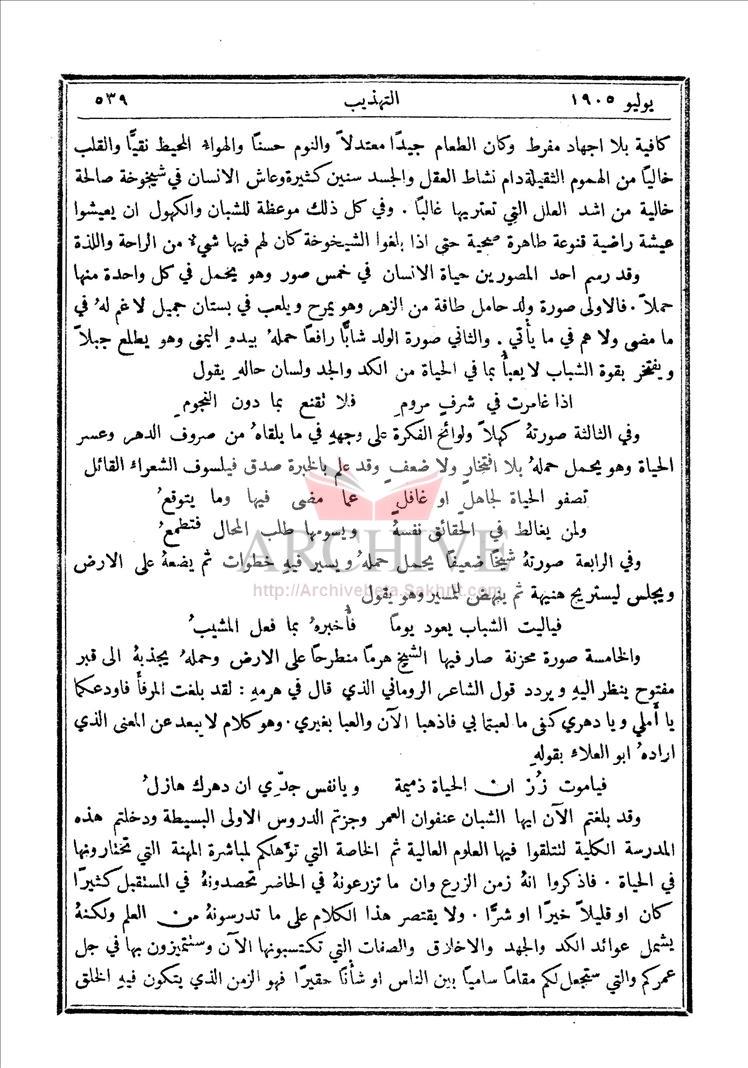 يوليو ١٩٠٥ التهذيب ٥٣٩
كافية بلا اجهاد مفرط وكان الطعام جيدًا معتدلاً والنوم حسنًا والهواء المحيط نقيًّا والقلب
خاليًا من الهموم الثقيلة دام نشاط العقل والجسد سنين كثيرة وعاش الانسان في شيخوخة صالحة
خالية من اشد العلل التي تعتريها غالبًا . وفي كل ذلك موعظة للشبان والكهول ان يعيشوا
عيشة راضية قنوعة طاهرة صحية حتى اذا بلغوا الشيخوخة كان لهم فيها شيءٌ من الراحة واللذة
وقد رسم احد المصورين حياة الانسان في خمس صور وهو يحمل في كل واحدة منها
حملاً . فالاولى صورة ولد حامل طاقة من الزهر وهو يمرح ويلعب في بستان جميل لا غم لهُ في
ما مضى ولا هم في ما يأتي . والثاني صورة الولد شابًّا رافعًا حملهُ بيدهِ اليمنى وهو يطلع جبلاً
ويفتخر بقوة الشباب لا يعبأُ بما في الحياة من الكد والجد ولسان حالهِ يقول
اذا غامرت في شرفٍ مرومٍ فلا تقنع بما دون النجومِ
وفي الثالثة صورتهُ كهلاً ولوائح الفكرة على وجههِ في ما يلقاهُ من صروف الدهر وعسر
الحياة وهو يحمل حملهُ بلا افتخارٍ ولا ضعفٍ وقد علم بالخبرة صدق فيلسوف الشعراء القائل
تصفو الحياة لجاهلٍ او غافلٍ عما مضى فيها وما يتوقعُ
ولمن يغالط في الحقائق نفسهُ ويسومها طلب المحال فتطمعُ
وفي الرابعة صورتهُ شيخًا ضعيفًا يحمل حملهُ ويسير فيهِ خطوات ثم يضعهُ على الارض
ويجلس ليستريح هنيهة ثم ينهض للمسير وهو يقول
فياليت الشباب يعود يومًا فأُخبرهُ بما فعل المشيبُ
والخامسة صورة محزنة صار فيها الشيخ هرمًا منطرحًا على الارض وحملهُ يجذبهُ الى قبر
مفتوح ينظر اليهِ ويردد قول الشاعر الروماني الذي قال في هرمهِ : لقد بلغت المرفأَ فاودعكما
يا أَملي ويا دهري كفى ما لعبتما بي فاذهبا الآن والعبا بغيري . وهو كلام لا يبعد عن المعنى الذي
ارادهُ ابو العلاء بقولهِ
فياموت زُر ان الحياة ذميمة ويانفس جدِّي ان دهرك هازلُ
وقد بلغتم الآن ايها الشبان عنفوان العمر وجزتم الدروس الاولى البسيطة ودخلتم هذه
المدرسة الكلية لتتلقوا فيها العلوم العالية ثم الخاصة التي تؤهلكم لمباشرة المهنة التي تختارونها
في الحياة . فاذكروا انهُ زمن الزرع وان ما تزرعونهُ في الحاضر تحصدونهُ في المستقبل كثيرًا
كان او قليلاً خيرًا او شرًّا . ولا يقتصر هذا الكلام على ما تدرسونهُ من العلم ولكنهُ
يشمل عوائد الكد والجهد والاخلاق والصفات التي تكتسبونها الآن وستتميزون بها في جل
عمركم والتي ستجعل لكم مقامًا ساميًا بين الناس او شأنًا حقيرًا فهو الزمن الذي يتكون فيهِ الخلق
ARCHIVE
http://Archivebeta.Sakhrit.com